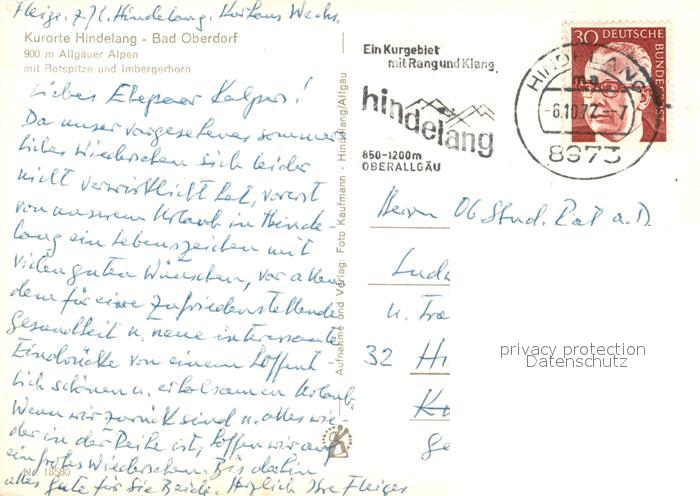 Fleige. z. Zt. Hindelang. Kurhaus Wechs.
Kurorte Hindelang - Bad Oberdorf
900 m Allgäuer Alpen
mit Rotspitze und Imbergerhorn
Liebes Ehepaar!
Da unser vorgesehenes sommer-
liches Wiedersehen sich leider
nicht verwirklicht hat, vorerst
von unserem Urlaub in Hinde-
lang ein Lebenszeichen mit
vielen guten Wünschen, vor allem
dem für eine zufriedenstellende
Gesundheit u. neue interessante
Eindrücke von einem hoffent-
lich schönen u. erholsamen Urlaub.
Wenn wir zurück sind u. alles wie-
der in der Reihe ist, hoffen wir auf
ein frohes Wiedersehen. Bis dahin
alles gute für Sie Beide. Herzlich Ihre Fleiges
Nr. 18580
Aufnahme und Verlag: Foto Kaufmann - Hindelang/Allgäu
Ein Kurgebiet
mit Rang und Klang
hindelang
850-1200m
OBERALLGÄU
HINDELANG
ma
-6.10.72 -7
8973
30 DEUTSCHE BUNDESPOST
Herrn Ob. Stud. Rat a. D.
Ludw
u. Fra
32 Hi
privacy protection
Datenschutz